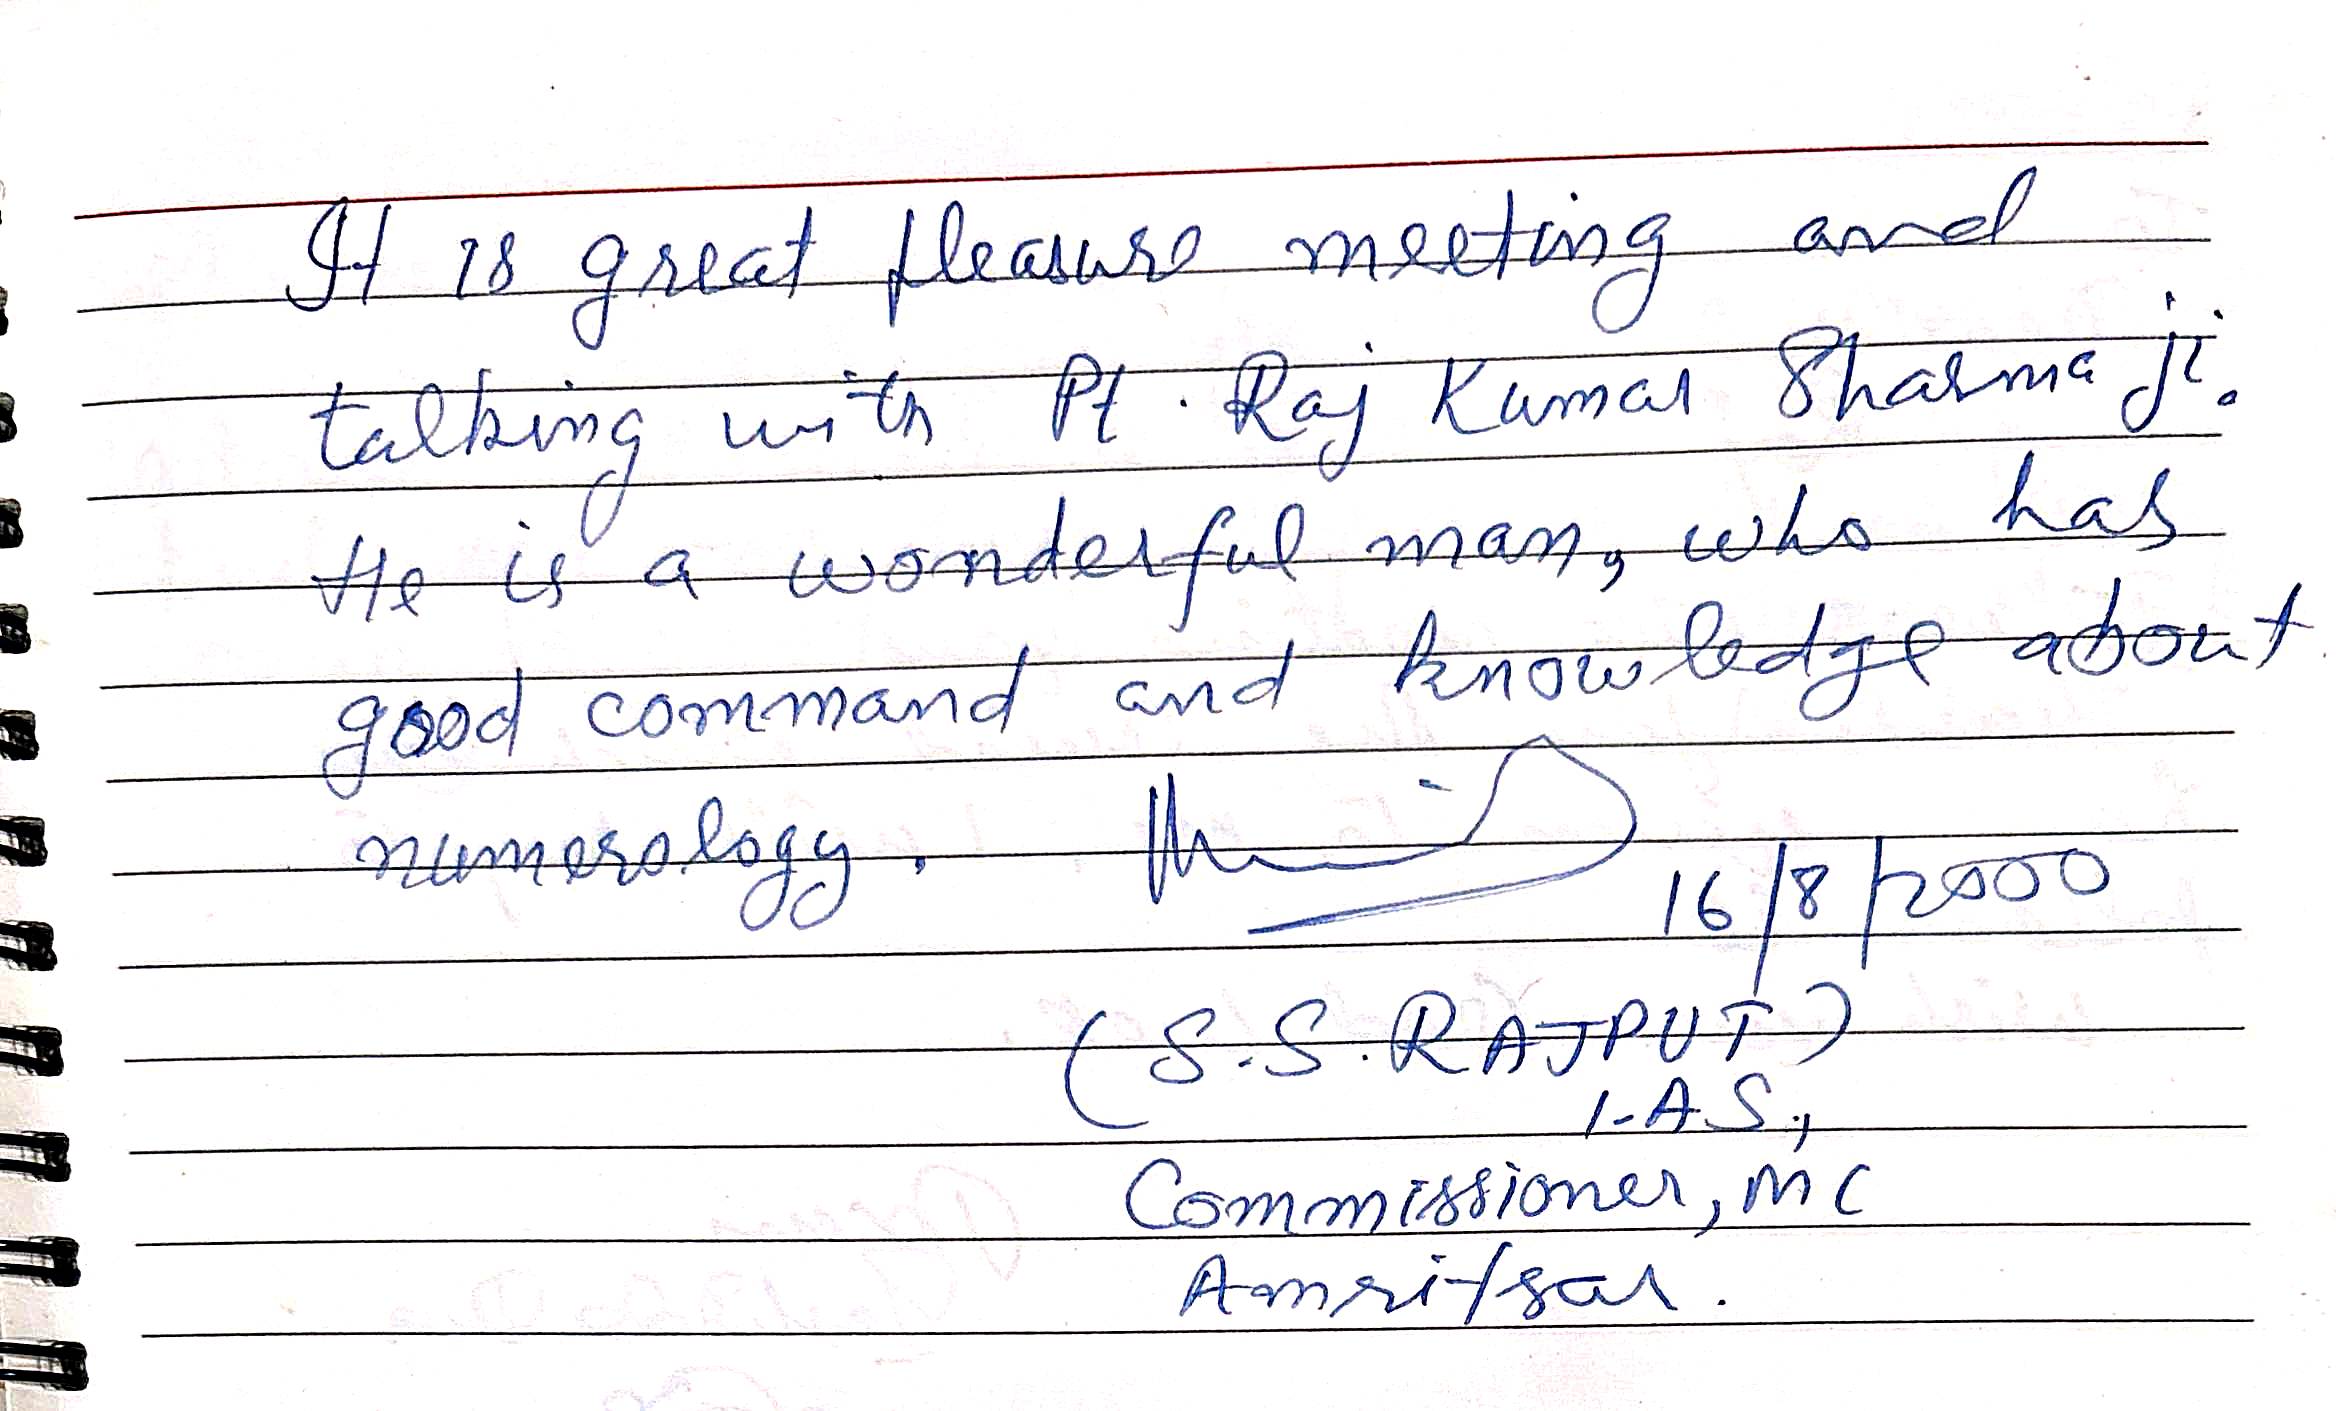 It is great pleasure meeting and
talking with Pt. Raj Kumar Sharma ji.
He is a wonderful man, who has
good command and knowledge about
numerology.
16/8/2000
(S.S. RAJPUT)
I.A.S.,
Commissioner, MC
Amritsar.